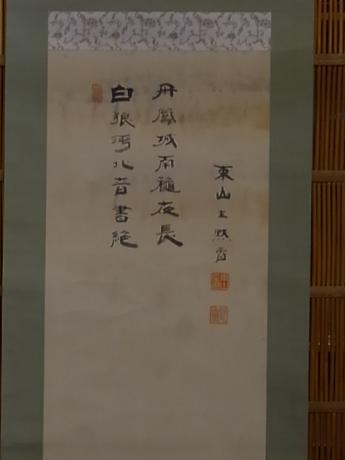 白狼河北音書絶
丹鳳城南穐夜長
東山王黙